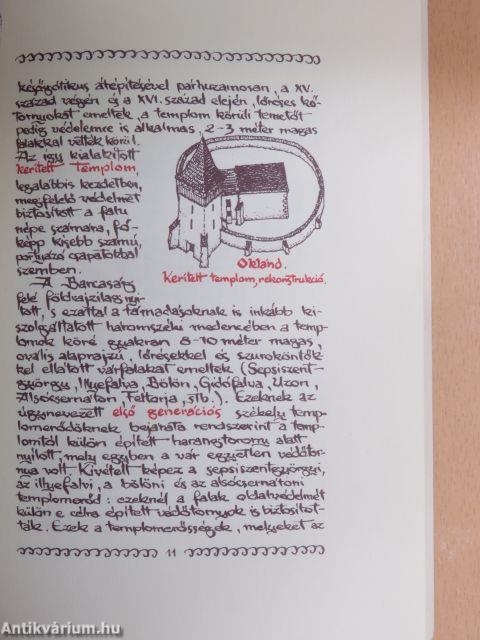 későgótikus átépítésével párhuzamosan, a XV.
század végén és a XVI. század elején, lőréses kő-
tornyokat emeltek, a templom körüli temetőt
pedig védelemre is alkalmas, 2-3 méter magas
falakkal vették körül.
Az így kialakított
kerített templom,
legalábbis kezdetben,
megfelelő védelmet
biztosított a falu
népe számára, fő-
képp kisebb számú,
portyázó csapatokkal
szemben.
Oklánd.
Kerített templom, rekonstrukció.
A Barcaság
felé földrajzilag nyi-
tott, s ezáltal a támadásoknak is inkább ki-
szolgáltatott háromszéki medencében a temp-
lomok köré gyakran 8-10 méter magas,
ovális alaprajzú, lőrésekkel és szuroköntők-
kel ellátott várfalakat emeltek (Sepsiszent-
györgy, Illyefalva, Bölön, Gidófalva, Uzon,
Alsócsernáton, Feltorja, stb.). Ezeknek az
úgynevezett első generációs székely temp-
lomerődöknek bejárata rendszerint a temp-
lomtól külön épített harangtorony alatt
nyílott, mely egyben a vár egyetlen védőtor-
nya volt. Kivételt képez a sepsiszentgyörgyi,
az illyefalvi, a bölöni és az alsócsernátoni
templomerőd: ezeknél a falak oldalvédelmét
külön e célra épített védőtornyok is biztosítot-
ták. Ezek a templomerősségek, melyeket az
11
Antikvárium.hu